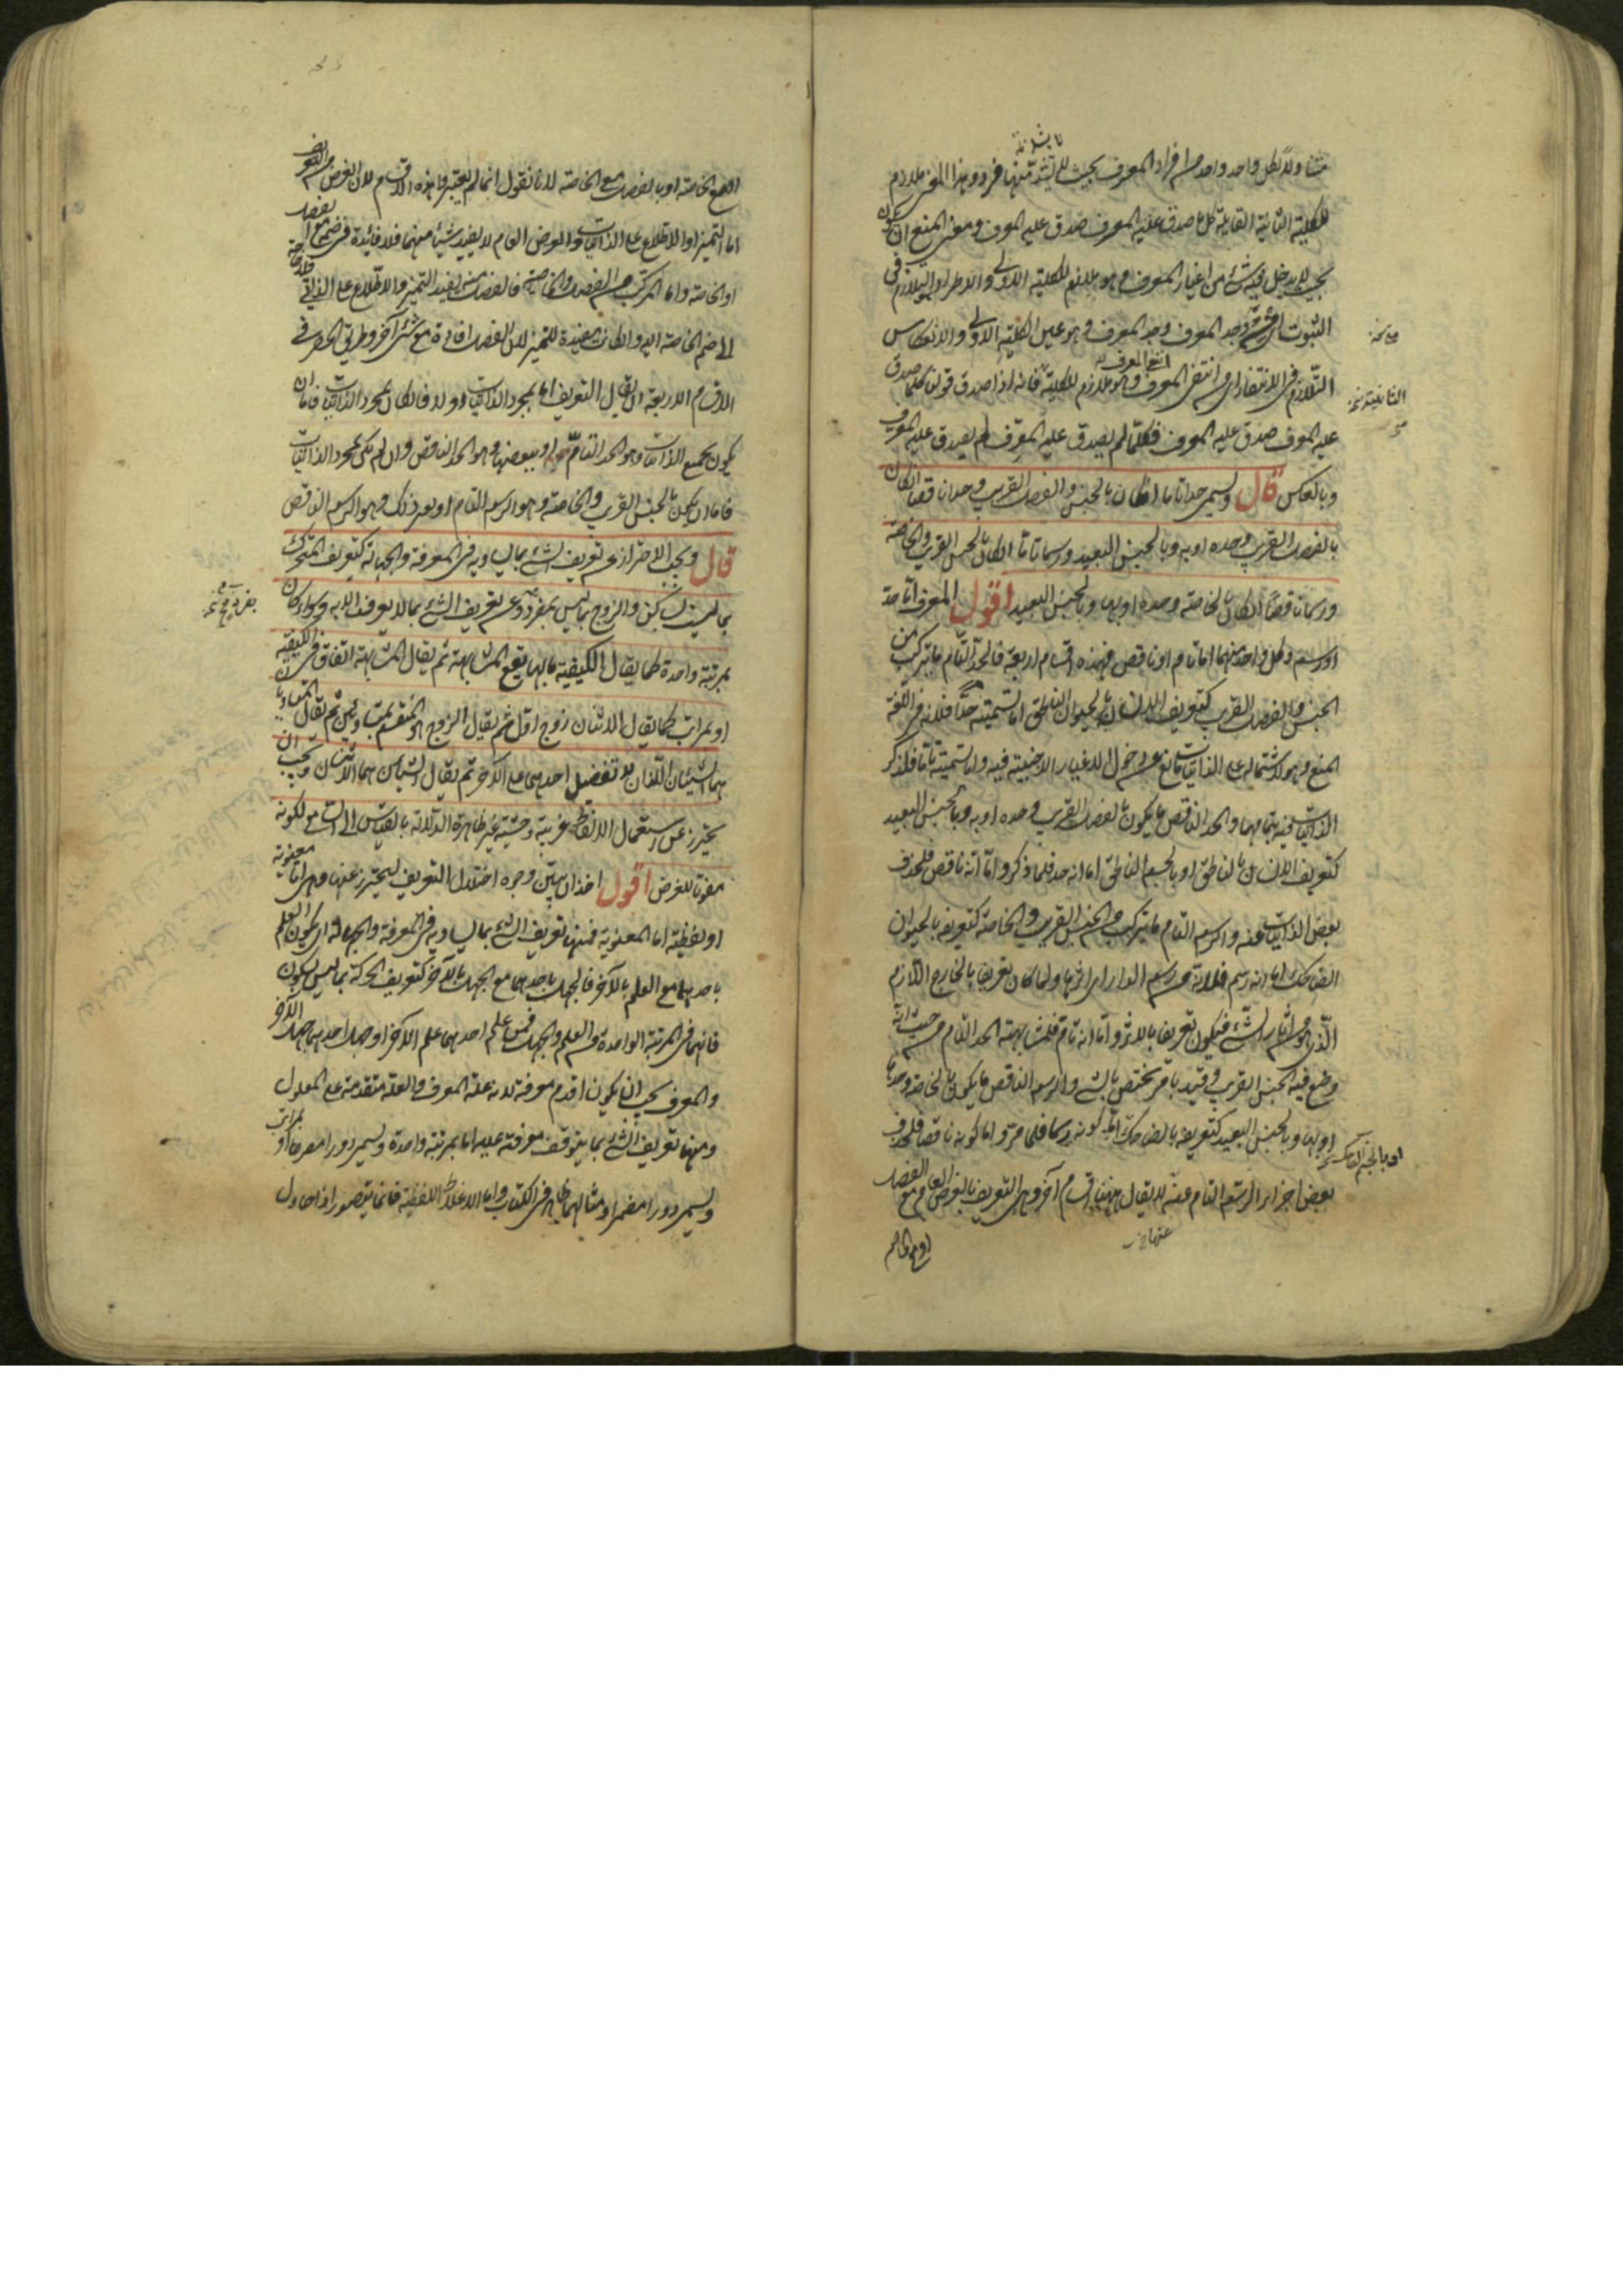 متناولا لكل واحد واحد من افراد المعرف بحيث لا يشذ منها فرد وهذا المعنى ملازم
للكلية الثانية القايلة كل ما صدق عليه المعرف صدق عليه المعرف ومعنى المنع ان يكون
بحيث لا يدخل فيه شئ من اغيار المعرف وهو ملازم للكلية الاولى والاطراد التلازم فى
الثبوت اى متى وجد المعرف وجد المعرف وهو عين الكلية الاولى والانعكاس
التلازم فى الانتفاء اى متى انتفى المعرف انتفى المعرف وهو ملازم للكلية الثانية فانه اذا صدق قولنا كلما صدق
عليه المعرف صدق عليه المعرف فكلما لم يصدق عليه المعرف لم يصدق عليه المعرف
وبالعكس قال ويسمى حدا تاما ان كان بالجنس والفصل القريبين وحدا ناقصا ان كان
بالفصل القريب وحده او به وبالجنس البعيد ورسما تاما ان كان بالجنس القريب والخاصة
ورسما ناقصا ان كان بالخاصة وحدها او بها وبالجنس البعيد اقول المعرف اما حد
او رسم وكل واحد منهما اما تام او ناقص فهذه اقسام اربعة فالحد التام ما يتركب من
الجنس والفصل القريبين كتعريف الانسان بالحيوان الناطق اما تسميته حدا فلانه فى اللغة
المنع وهو لاشتماله على الذاتيات مانع عن دخول الاغيار الاجنبية فيه واما تسميته تاما فلذكر
الذاتيات فيه بتمامها والحد الناقص ما يكون بالفصل القريب وحده او به وبالجنس البعيد
كتعريف الانسان بالناطق او بالجسم الناطق اما انه حد فلما ذكر واما انه ناقص فلحذف
بعض الذاتيات عنه والرسم التام ما يتركب من الجنس القريب والخاصة كتعريفه بالحيوان
الضاحك اما انه رسم فلانه رسم الدار اى اثرها ولما كان تعريفا بالخارج اللازم
الذى هو من اثار الشئ فيكون تعريفا بالاثر واما انه تام فلمشابهته الحد التام من حيث انه
وضع فيه الجنس القريب وقيد بامر يختص بالشئ والرسم الناقص ما يكون بالخاصة وحدها
او بها وبالجنس البعيد كتعريفه بالضاحك اما كونه رسما فلما مر واما كونه ناقصا فلحذف
بعض اجزاء الرسم التام عنه لا يقال ههنا اقسام آخر وهى التعريف بالعرض العام مع الفصل
او مع الخاصة او بالفصل مع الخاصة لانا نقول انما لم يعتبروا هذه الاقسام لان الغرض من التعريف
اما التميز او الاطلاع على الذاتيات والعرض العام لا يفيد شيئا منهما فلا فائدة فى ضمه مع الفصل
او الخاصة واما المركب من الفصل والخاصة فالفصل فيه يفيد التميز والاطلاع على الذاتى فلا حاجة
الى ضم الخاصة اليه وان كانت مفيدة للتميز لان الفصل افاده مع شئ آخر وطريق الحصر فى
الاقسام الاربعة ان يقال التعريف اما بمجرد الذاتيات او لا فان كان بمجرد الذاتيات فاما ان
يكون بجميع الذاتيات وهو الحد التام او ببعضها وهو الحد الناقص وان لم يكن بمجرد الذاتيات
فاما ان يكون بالجنس القريب والخاصة وهو الرسم التام او بغير ذلك وهو الرسم الناقص
قال ويجب الاحتراز عن تعريف الشئ بما يساويه فى المعرفة والجهالة كتعريف المتحرك
بما ليس بساكن والزوج بما ليس بفرد وعن تعريف الشئ بما لا يعرف الا به سواء كان
بمرتبة واحدة كما يقال الكيفية ما بها يقع المشابهة ثم يقال المشابهة اتفاق فى الكيفية
او بمراتب كما يقال الاثنان زوج اول ثم يقال الزوج هو المنقسم بمتساويين ثم يقال المتساويان
هما الشيئان اللذان لا تفضيل احدهما على الآخر ثم يقال الشيئان هما الاثنان ويجب ان
يحترز عن استعمال الالفاظ غريبة وحشية غير ظاهرة الدلالة بالقياس الى السامع لكونه
مفوتا للغرض اقول اخذ ان يبين وجوه اختلال التعريف ليحترز عنها وهى اما معنوية
او لفظية اما المعنوية فمنها تعريف الشئ بما يساويه فى المعرفة والجهالة اى يكون العلم
باحدهما مع العلم بالآخر والجهل باحدهما مع الجهل بالآخر كتعريف الحركة بما ليس بسكون
فانهما فى المرتبة الواحدة من العلم والجهل فمن علم احدهما علم الآخر او جهل احدهما جهل الآخر
والمعرف يجب ان يكون اقدم معرفة لانه علة المعرف والعلة متقدمة على المعلول
ومنها تعريف الشئ بما يتوقف معرفته عليه اما بمرتبة واحدة ويسمى دورا مصرحا او بمراتب
ويسمى دورا مضمرا ومثالهما ظاهر فى الكتاب واما الاغلاط اللفظية فانما يتصور اذا حاول